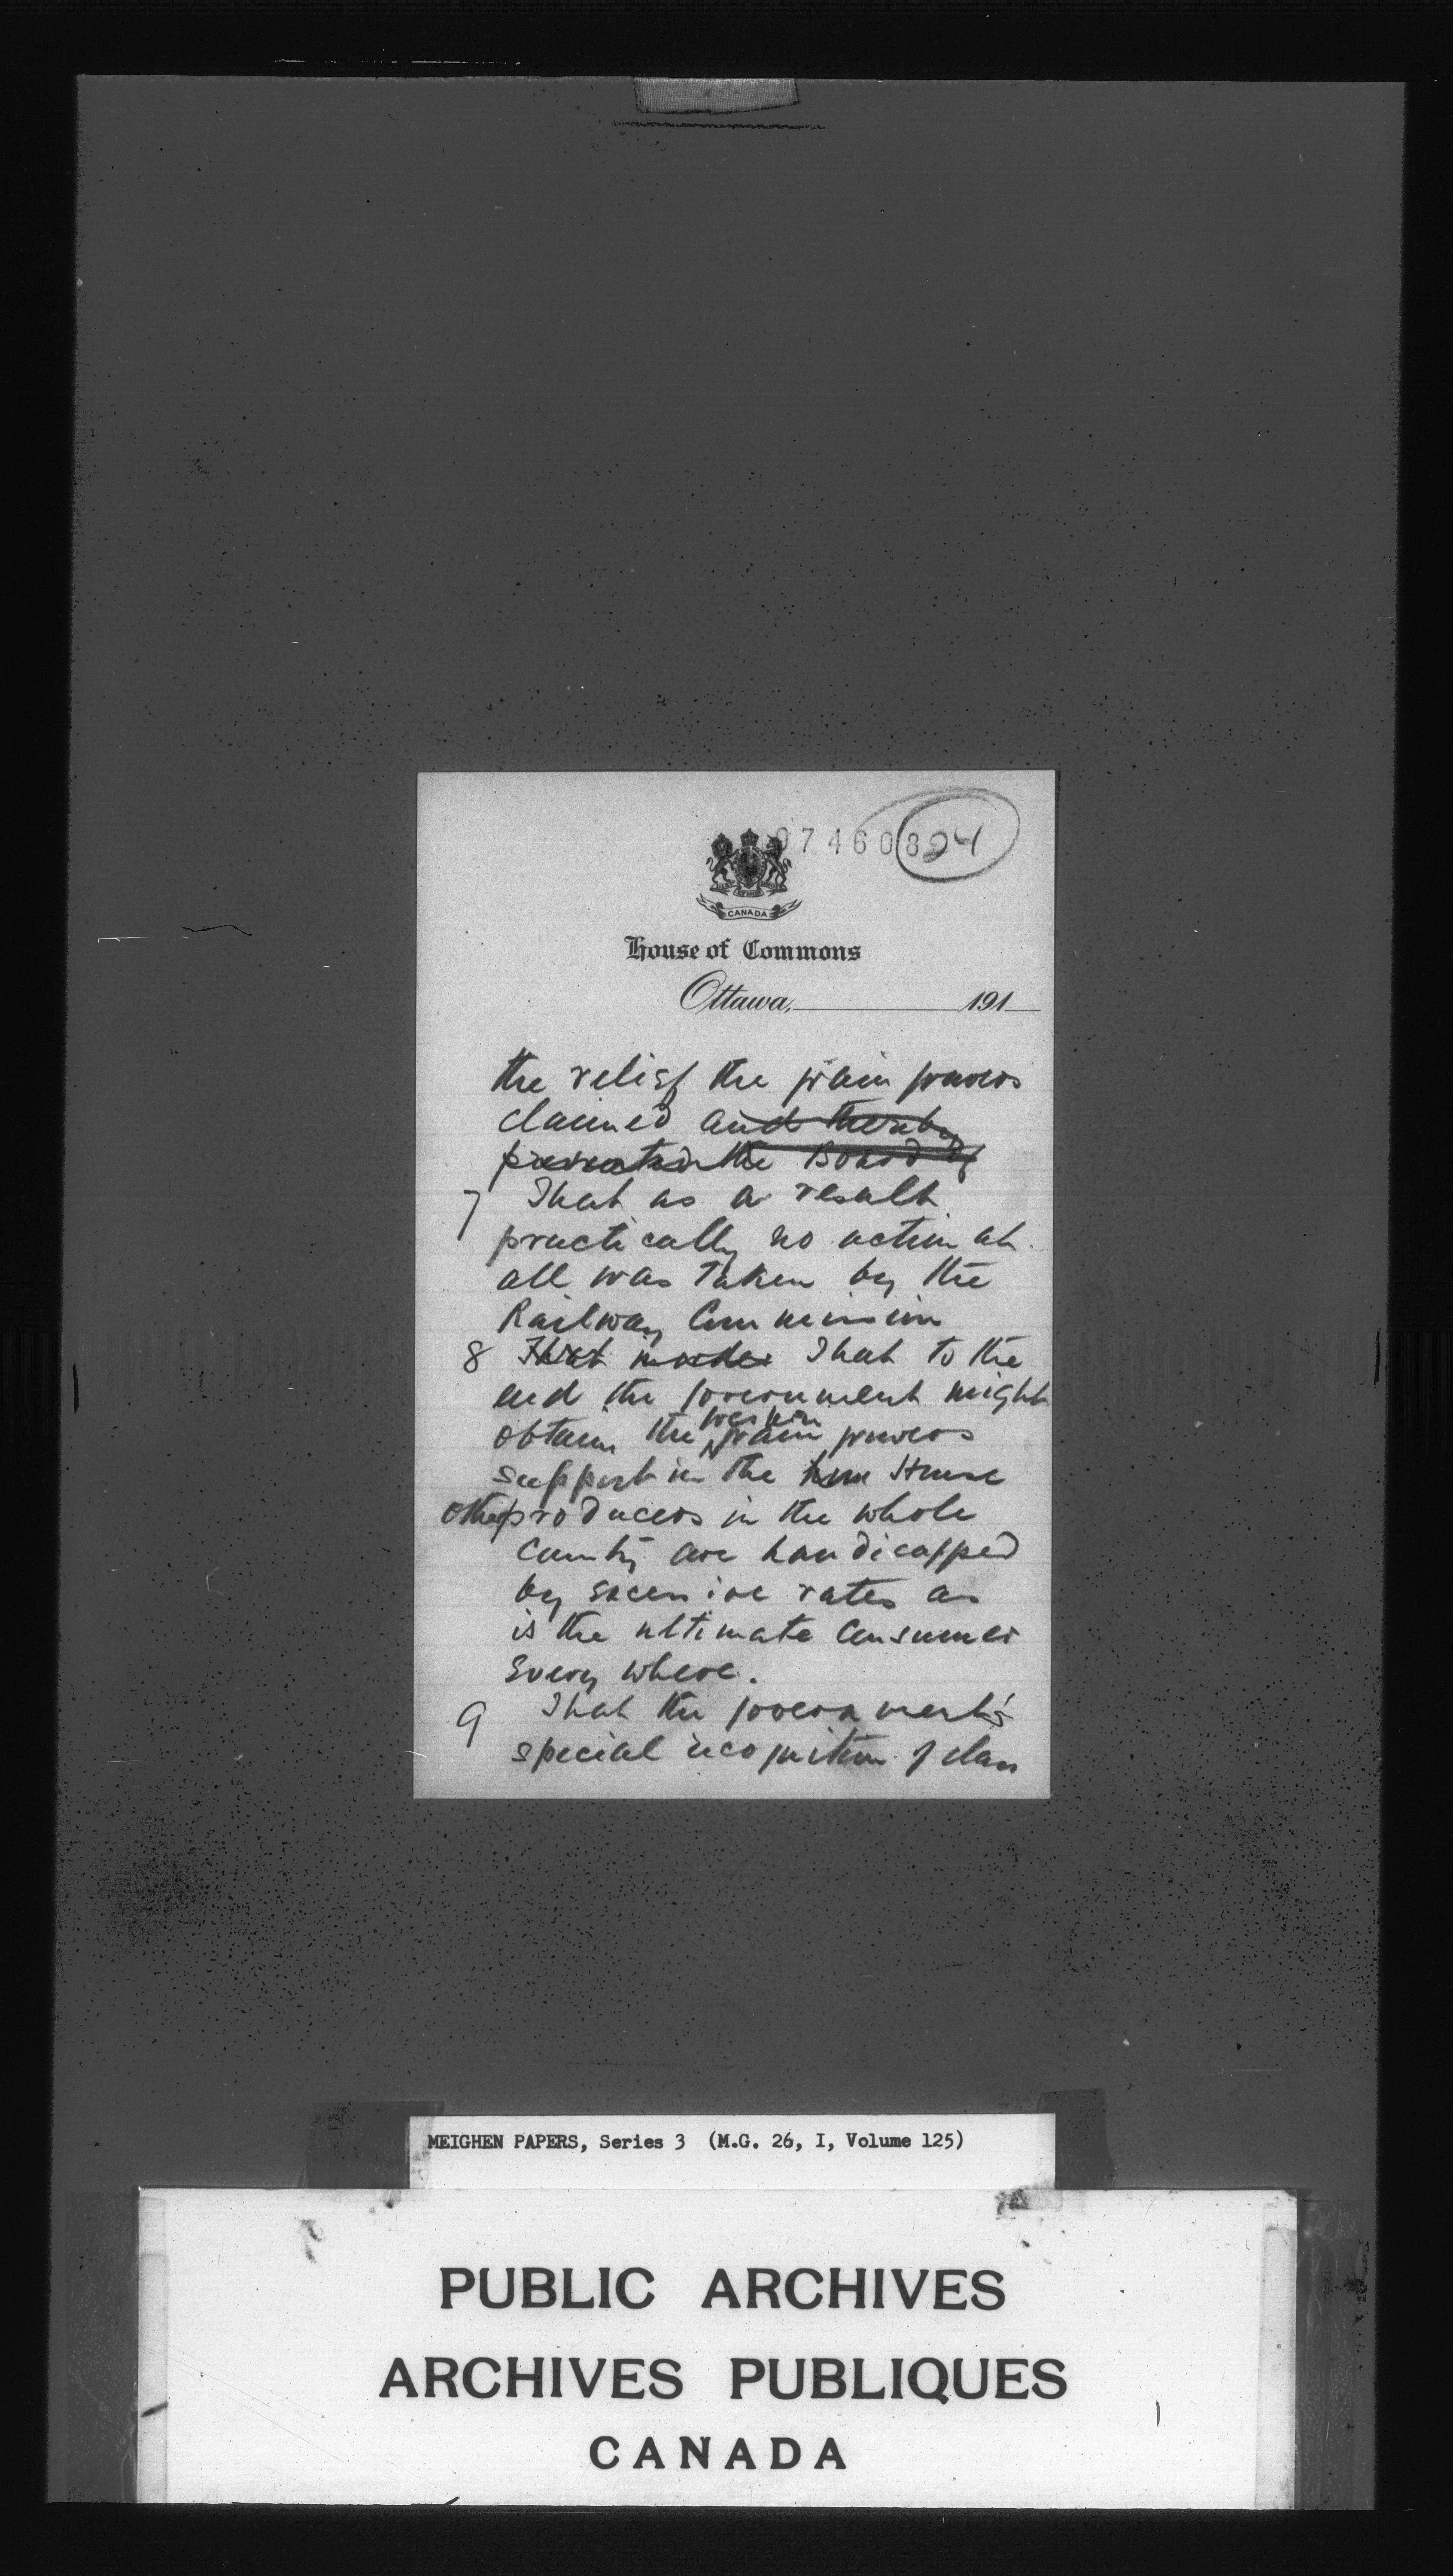 074608
24
CANADA
House of Commons
Ottawa, 191
the relief the grain growers
claimed and thereby
prevented the Board of
7 That as a result
practically no action at
all was taken by the
Railway Commission
8 That in order That to the
end the government might
western
obtain the grain growers
support in the House
other producers in the whole
country are handicapped
by excessive rates as
is the ultimate consumer
every where.
9 That the government's
special recognition of class
MEIGHEN PAPERS, Series 3 (M.G. 26, I, Volume 125)
PUBLIC ARCHIVES
ARCHIVES PUBLIQUES
CANADA